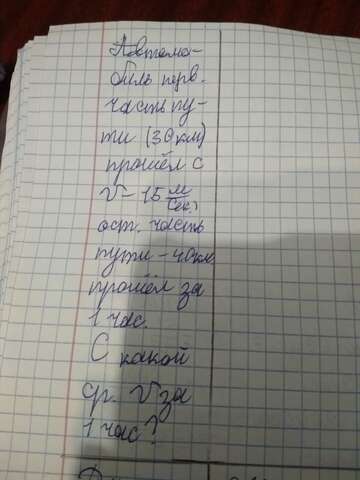 Автомо-
биль перв.
часть пу-
ти (30 км)
прошёл с
V - 15 м/сек.,
ост. часть
пути - 40 км,
прошёл за
1 час.
С какой
ср. V за
1 час?